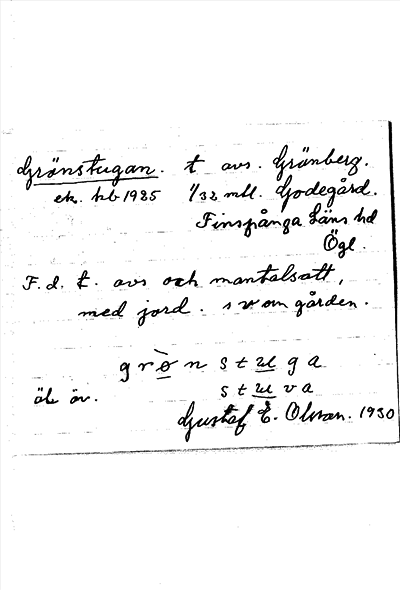 Grönstugan. t avs. Grönberg.
ek. hb 1925 1/32 mtl. Godegård.
Finspånga Läns hd
Ögl.
F.d. t. avs och mantalsatt,
med jord. s v om gården.
grò̲n stu̲ga
äb äv. stu̲va
Gustaf E. Olsson. 1930